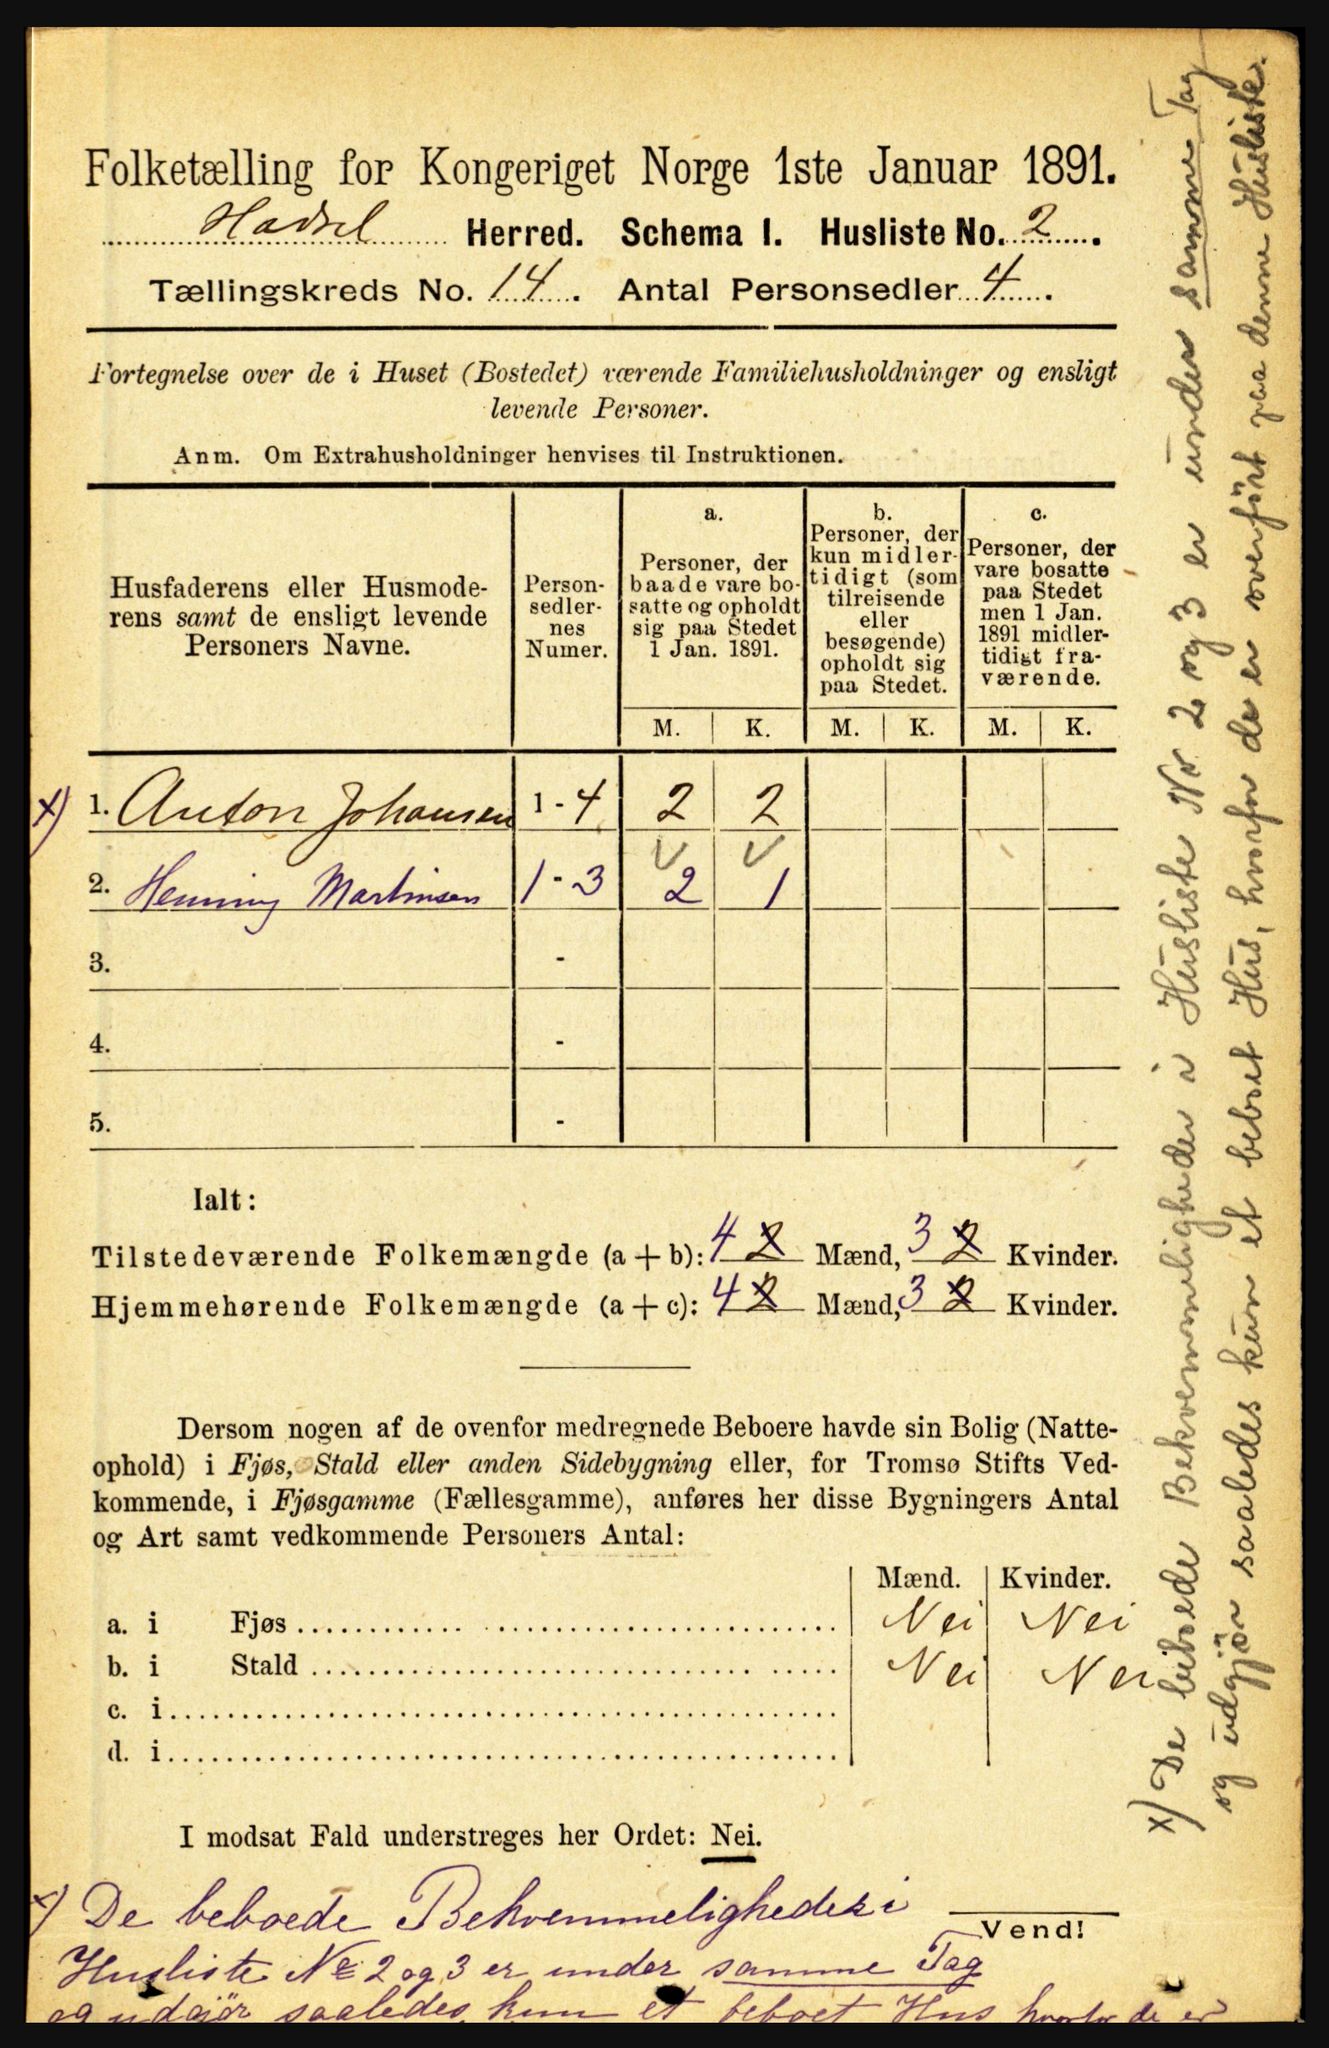 Folketælling for Kongeriget Norge 1ste Januar 1891.
Hadsel Herred. Schema I. Husliste No. 2.
Tællingskreds No. 14. Antal Personsedler 4.
Fortegnelse over de i Huset (Bostedet) værende Familiehusholdninger og ensligt
levende Personer.
Anm. Om Extrahusholdninger henvises til Instruktionen.
Husfaderens eller Husmode-
rens samt de ensligt levende
Personers Navne.
Person-
sedler-
nes
Numer.
a.
Personer, der
baade vare bo-
satte og opholdt
sig paa Stedet
1 Jan. 1891.
b.
Personer, der
kun midler-
tidigt (som
tilreisende
eller
besøgende)
opholdt sig
paa Stedet.
c.
Personer, der
vare bosatte
paa Stedet
men 1 Jan.
1891 midler-
tidigt fra-
værende.
M. K. M. K. M. K.
x) 1. Anton Johansen 1 - 4 2 2
2. Henning Martinsen 1 - 3 2 1
3. -
4. -
5. -
Ialt:
Tilstedeværende Folkemængde (a + b): 4 2 Mænd, 3 2 Kvinder.
Hjemmehørende Folkemængde (a + c): 4 2 Mænd, 3 2 Kvinder.
Dersom nogen af de ovenfor medregnede Beboere havde sin Bolig (Natte-
ophold) i Fjøs, Stald eller anden Sidebygning eller, for Tromsø Stifts Ved-
kommende, i Fjøsgamme (Fællesgamme), anføres her disse Bygningers Antal
og Art samt vedkommende Personers Antal:
Mænd. Kvinder.
a. i Fjøs Nei Nei
b. i Stald Nei Nei
c. i
d. i
I modsat Fald understreges her Ordet: Nei.
Vend!
x) De beboede Bekvemmeligheder i
Husliste No 2 og 3 er under samme Tag
og udgjör saaledes kun et beboet Hus hvorfor de er
x) De beboede Bekvemmeligheder i Husliste Nr 2 og 3 er under samme Tag
og udgjör saaledes kun et beboet Hus, hvorfor de er overfört paa denne Husliste.